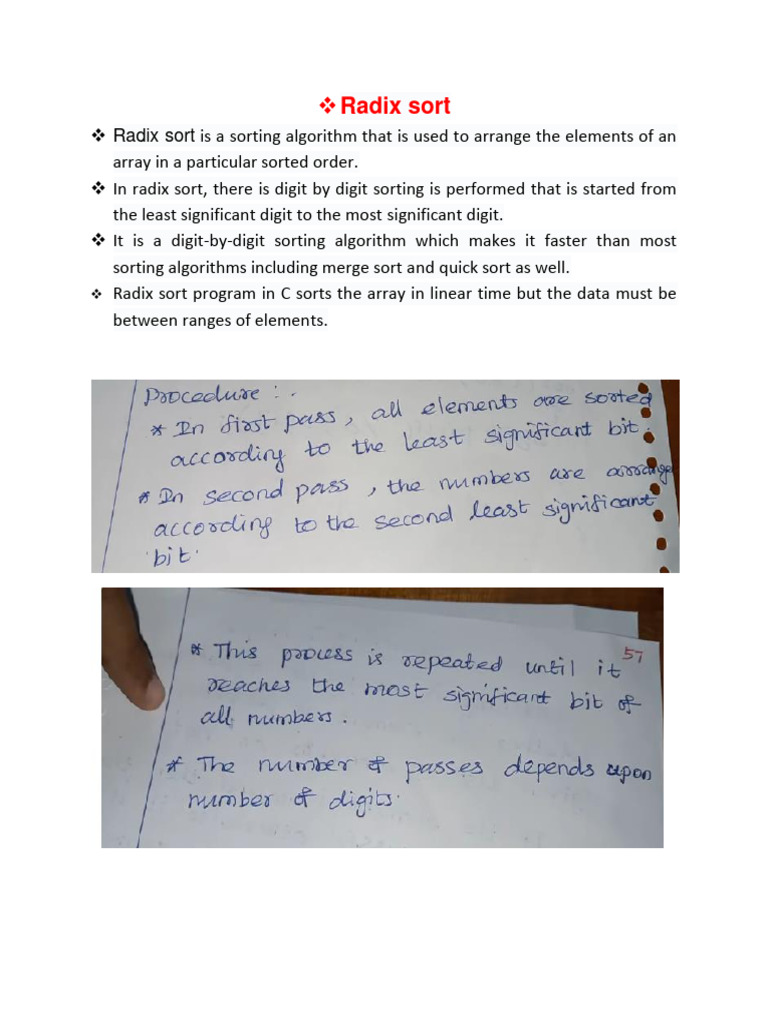 ❖ Radix sort
❖ Radix sort is a sorting algorithm that is used to arrange the elements of an
array in a particular sorted order.
❖ In radix sort, there is digit by digit sorting is performed that is started from
the least significant digit to the most significant digit.
❖ It is a digit-by-digit sorting algorithm which makes it faster than most
sorting algorithms including merge sort and quick sort as well.
❖ Radix sort program in C sorts the array in linear time but the data must be
between ranges of elements.
Procedure :.
* In first pass, all elements are sorted
according to the least significant bit.
* In second pass, the numbers are arrange
according to the second least significant
bit.
57
* This process is repeated until it
reaches the most significant bit of
all numbers.
* The number of passes depends upon
number of digits.